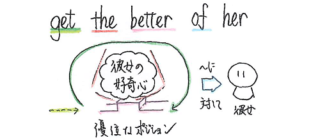 get the better of her
彼女の
好奇心
に
対して
彼女
優位なポジション